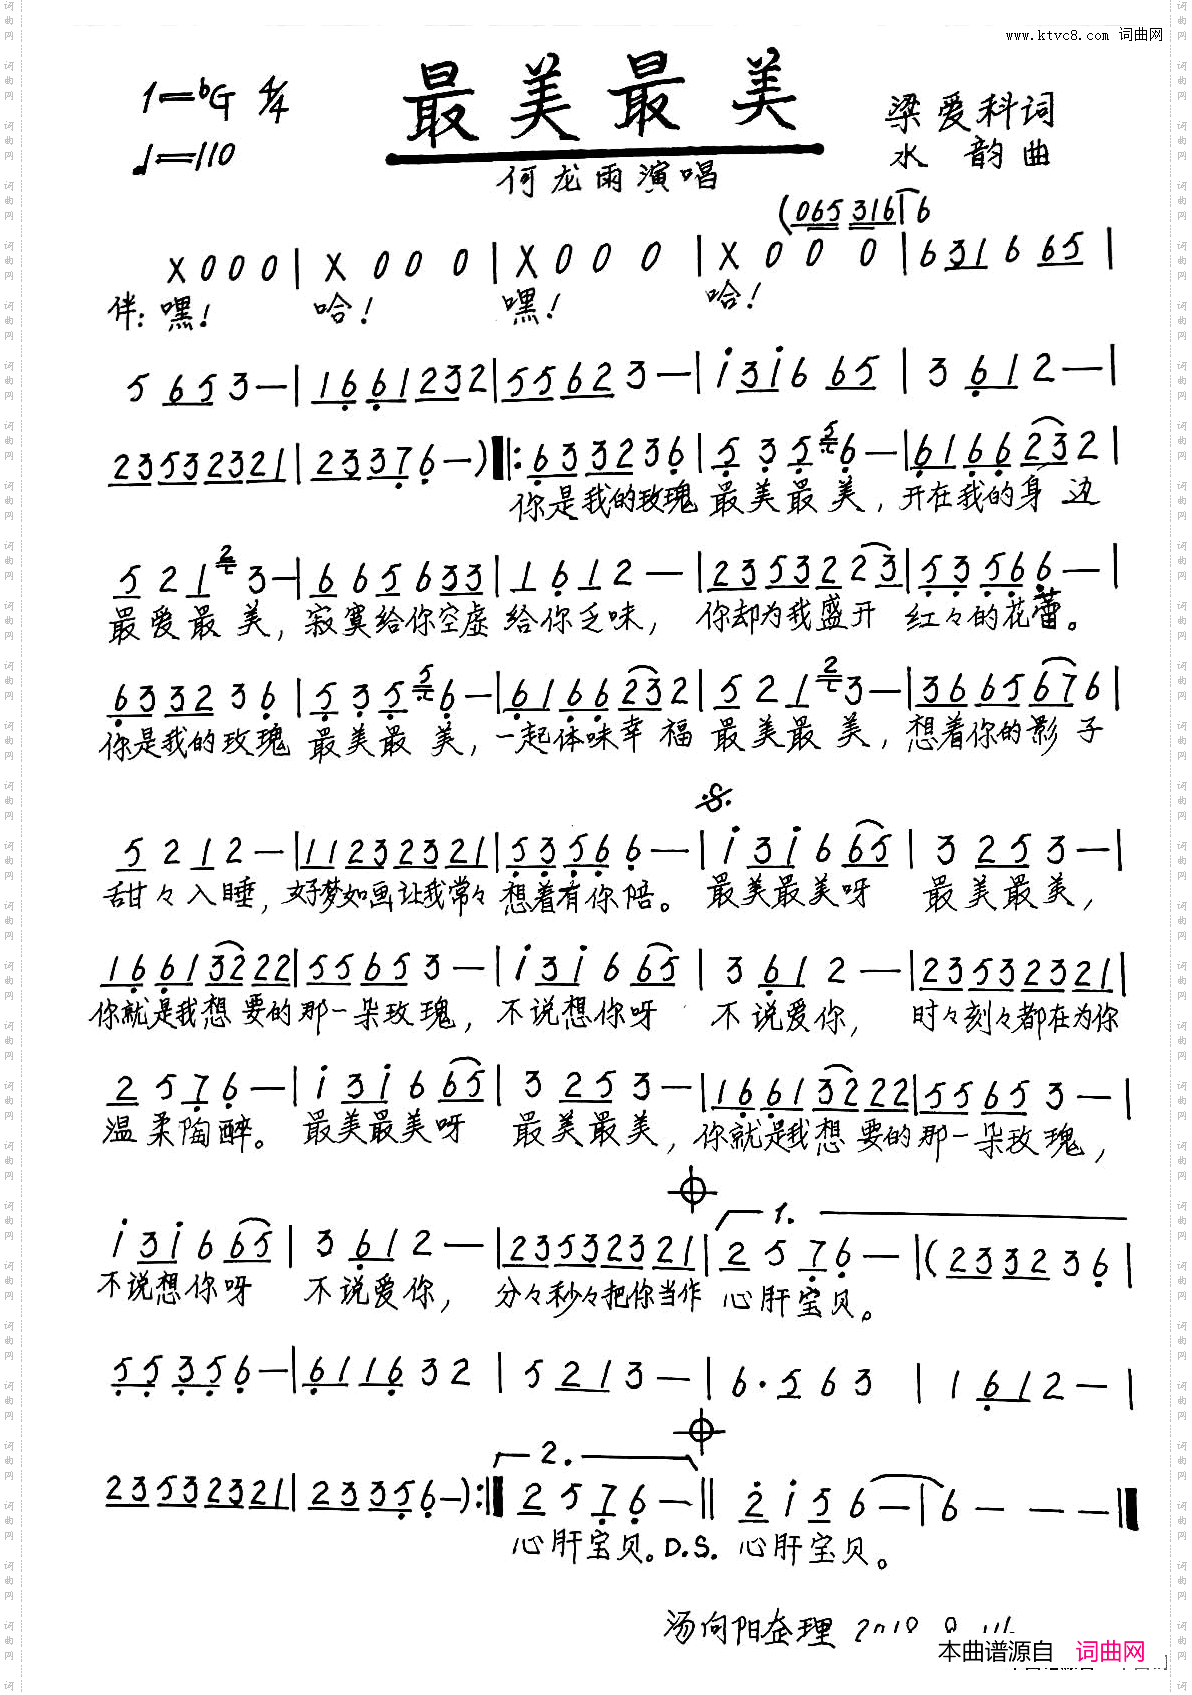 www.ktvc8.com 词曲网
1=♭G 4/4
最美最美
梁爱科词
♩=110
水 韵曲
何龙雨演唱
(065 316 | 6
X 0 0 0 | X 0 0 0 | X 0 0 0 | X 0 0 0 | 6 31 6 65 |
伴: 嘿! 哈! 嘿! 哈!
5 65 3 — | 16 61 23 2 | 55 62 3 — | i 3i 6 65 | 3 61 2 — |
23532321 | 23376 — ) ‖: 633236 | 5 3 5 6 — | 6166232 |
你是我的玫瑰 最美最美, 开在我的身边
5 2 1 3 — | 6 6 5 6 3 3 | 1 6 1 2 — | 23532 23 | 5 3 5 6 6 — |
最爱最美, 寂寞给你空虚 给你乏味, 你却为我盛开 红々的花蕾。
633236 | 5 3 5 6 — | 6166232 | 5 2 1 3 — | 3665676 |
你是我的玫瑰 最美最美, 一起体味幸福 最美最美, 想着你的影子
5 2 1 2 — | 11232321 | 5 3 5 6 6 — | i 3i 6 65 | 3 25 3 — |
甜々入睡, 好梦如画让我常々 想着有你陪。 最美最美呀 最美最美,
16613222 | 55653 — | i 3i 6 65 | 3 61 2 — | 23532321 |
你就是我想要的那一朵玫瑰, 不说想你呀 不说爱你, 时々刻々都在为你
2 5 7 6 — | i 3i 6 65 | 3 25 3 — | 16613222 | 55653 — |
温柔陶醉。 最美最美呀 最美最美, 你就是我想要的那一朵玫瑰,
1.
i 3i 6 65 | 3 61 2 — | 23532321 | 2 5 7 6 — | (233236 |
不说想你呀 不说爱你, 分々秒々把你当作 心肝宝贝。
55356 — | 611632 | 5 21 3 — | 6· 5 6 3 | 1 61 2 — |
2.
23532321 | 23356 — ) :‖ 2 5 7 6 — ‖ 2 i 5 6 — | 6 — — — ‖
心肝宝贝。D.S. 心肝宝贝。
汤向阳整理
本曲谱源自 词曲网